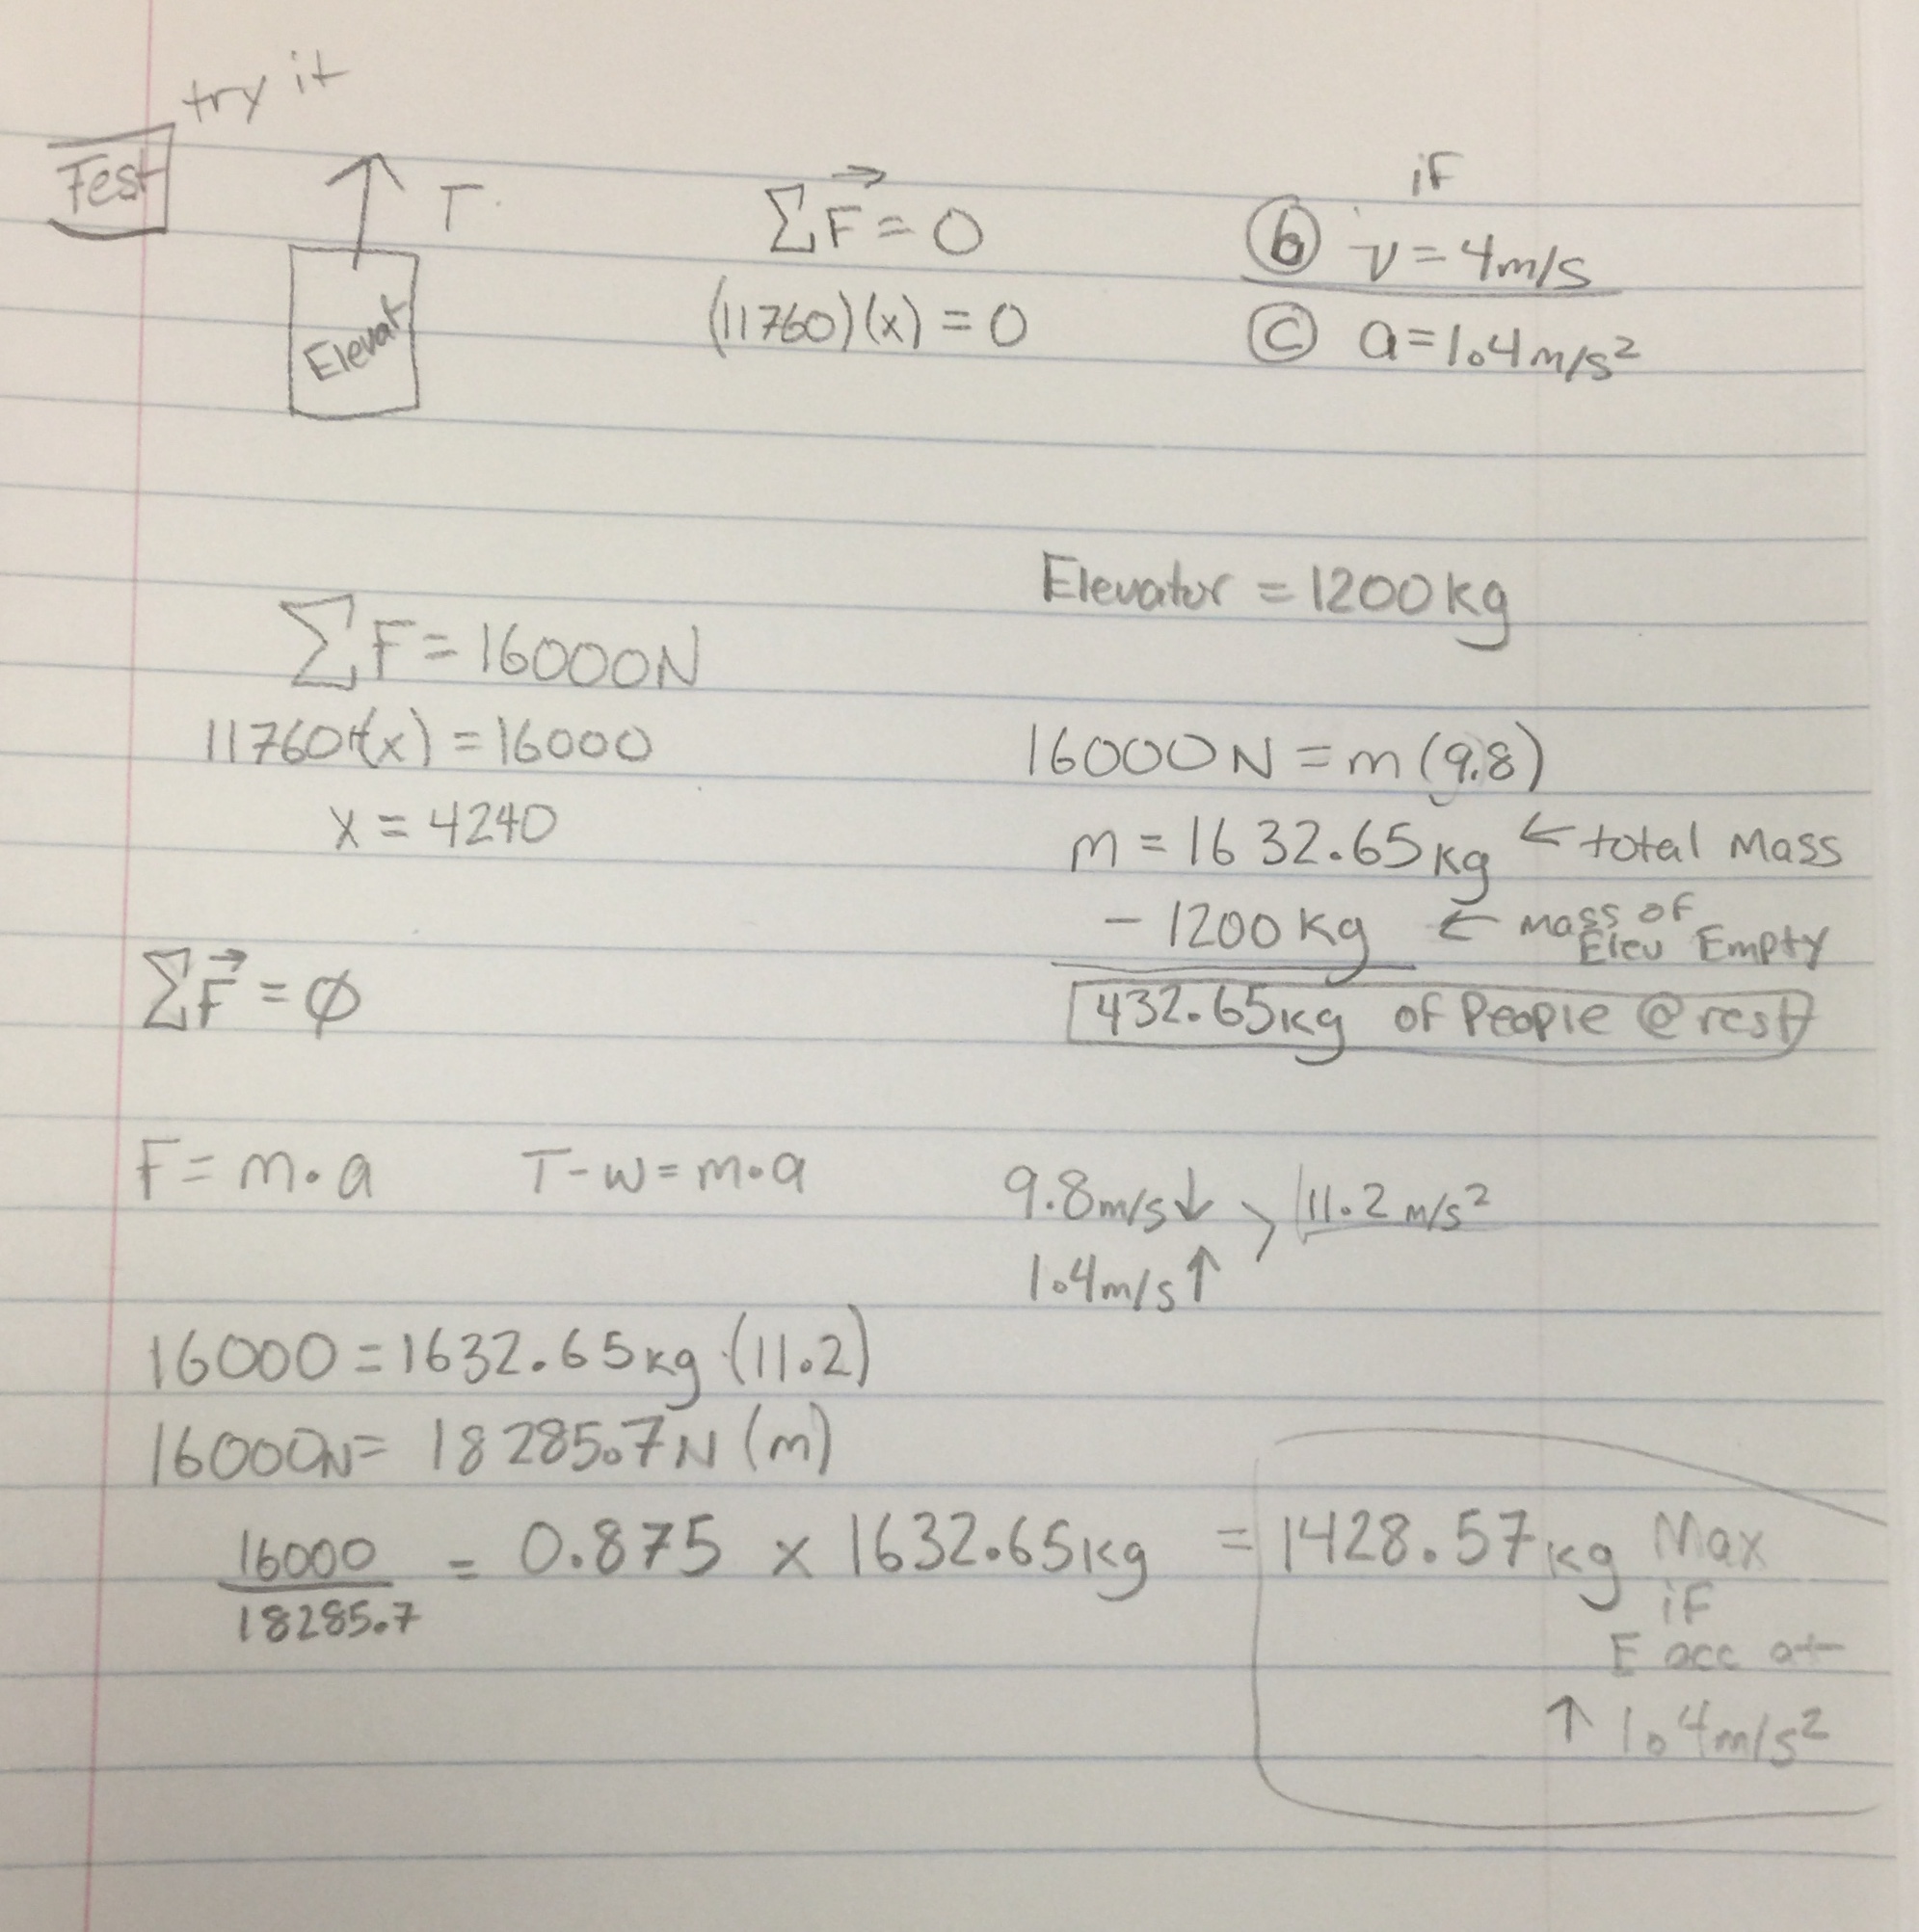 try it
Test
T
Elevat
ΣF⃗ = 0
(11760)(x) = 0
if
ⓑ v = 4m/s
ⓒ a = 1.4m/s²
Elevator = 1200kg
ΣF = 16000N
11760+(x) = 16000
x = 4240
16000N = m(9.8)
m = 1632.65kg ← total Mass
- 1200kg ← mass of Elev Empty
432.65kg of People @ rest
ΣF⃗ = ∅
F = m·a T-w = m·a
9.8m/s↓
1.4m/s↑ > 11.2 m/s²
16000 = 1632.65kg (11.2)
16000N = 18285.7N (m)
16000/18285.7 = 0.875 x 1632.65kg = 1428.57kg Max
if
E acc at
↑ 1.4m/s²